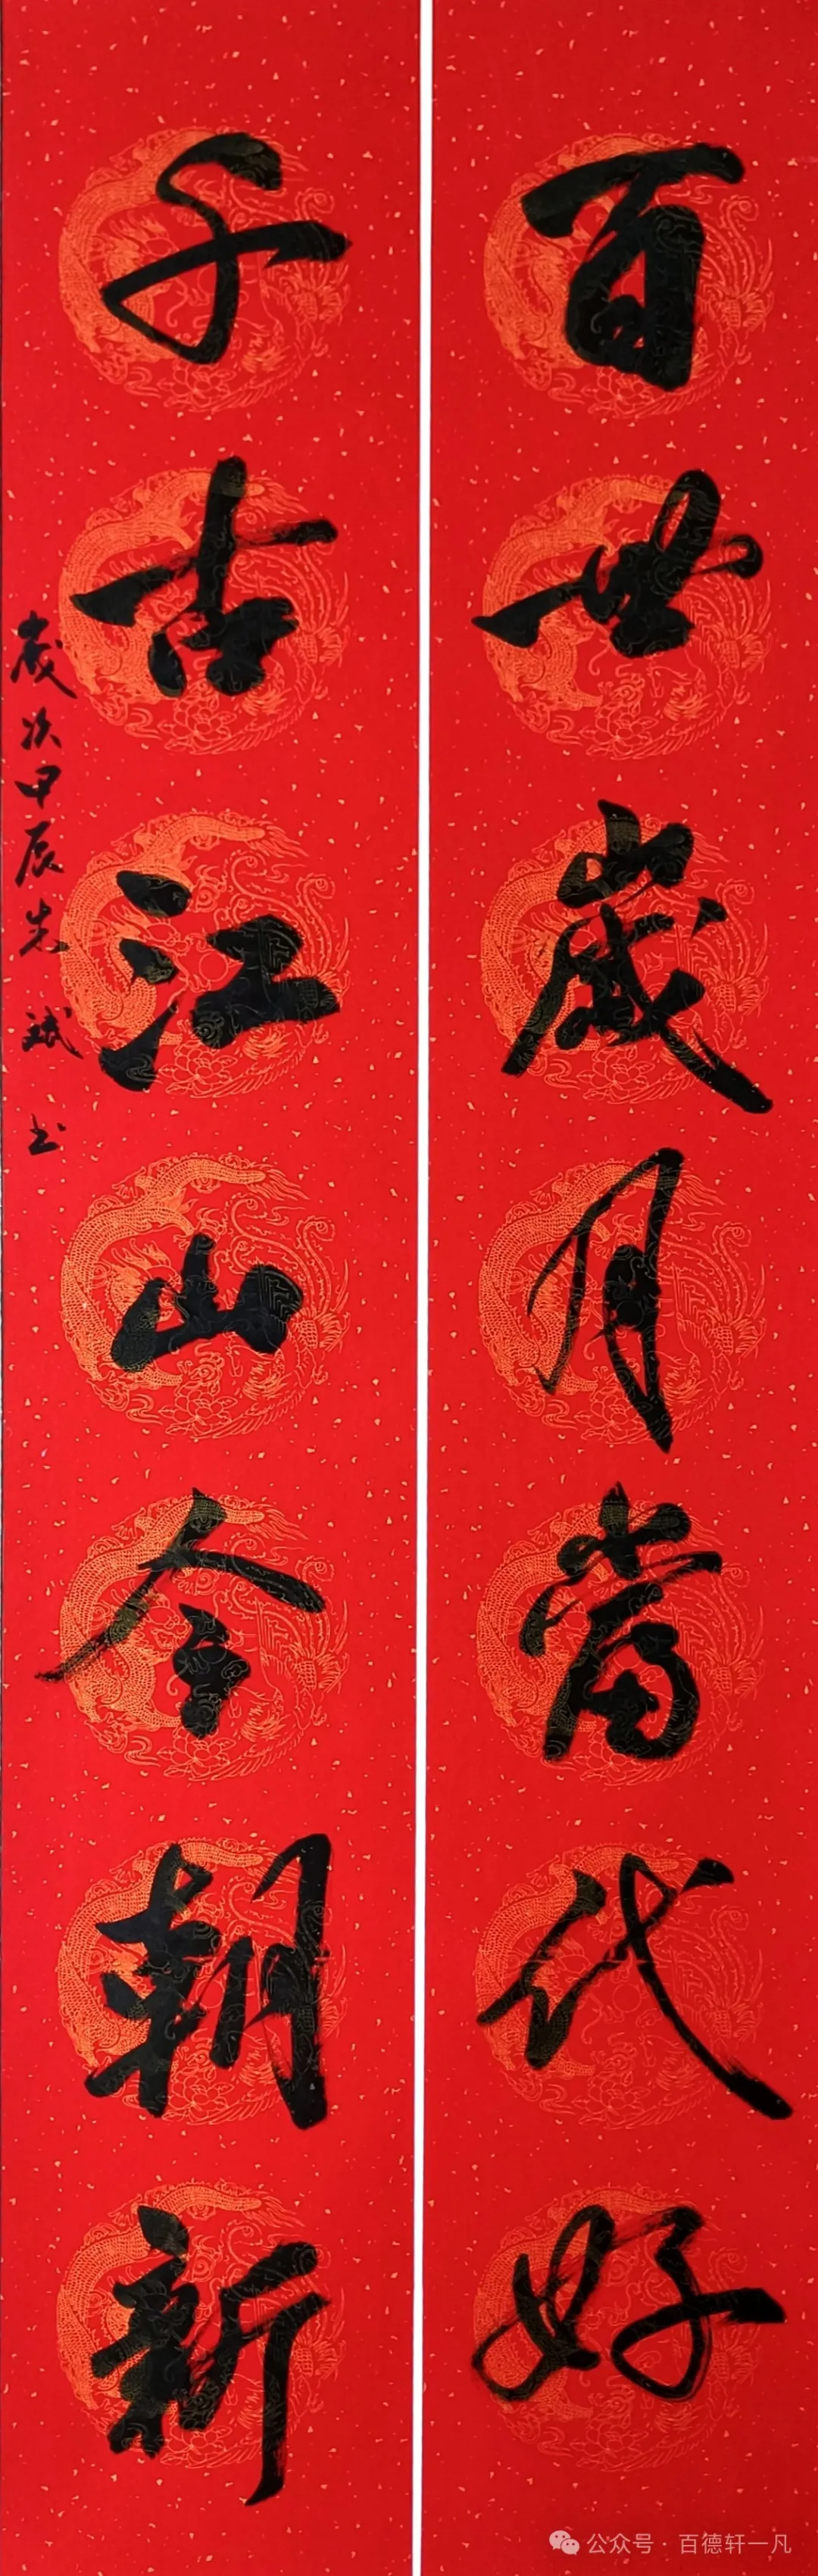 百世歲月當代好
千古江山今朝新
歲次甲辰先斌书
公众号·百德轩一凡